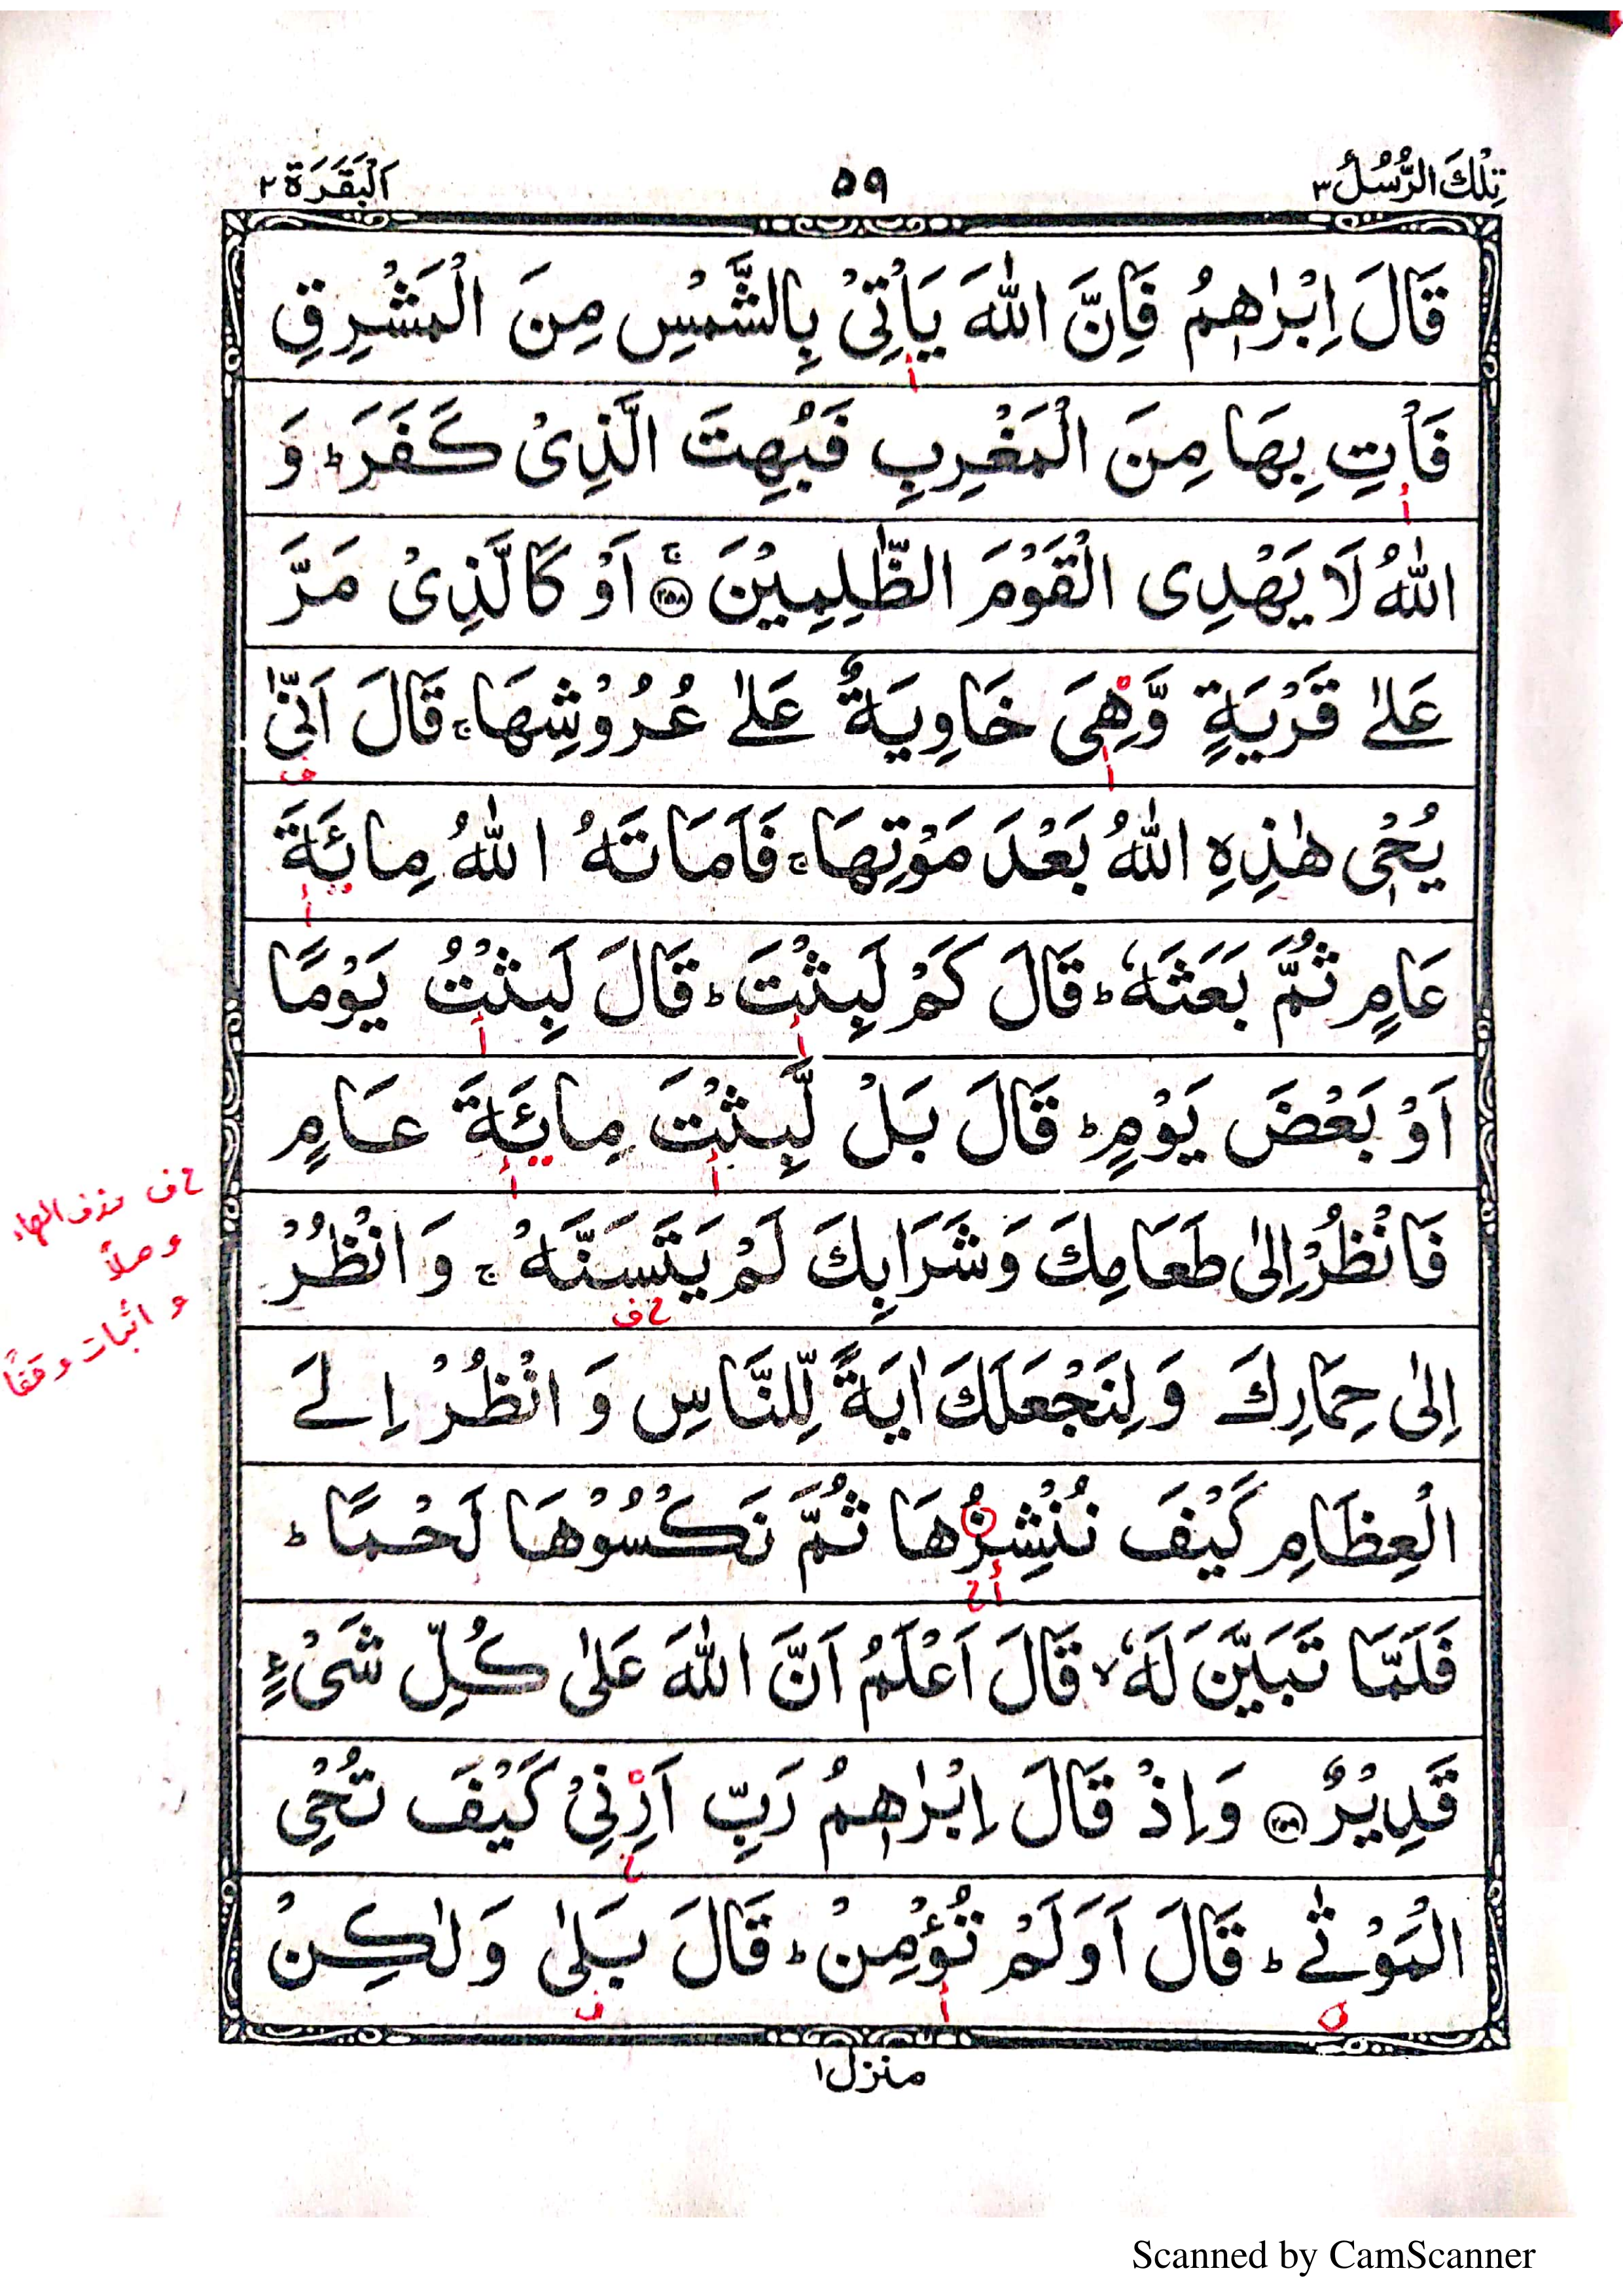 تِلْكَ الرُّسُلُ ٣
٥٩
اَلْبَقَرَة ٢
قَالَ اِبْرٰهٖمُ فَاِنَّ اللّٰهَ يَاْتِىْ بِالشَّمْسِ مِنَ الْمَشْرِقِ
أ
فَاْتِ بِهَا مِنَ الْمَغْرِبِ فَبُهِتَ الَّذِىْ كَفَرَ ؕ وَ
أ
اللّٰهُ لَا يَهْدِى الْقَوْمَ الظّٰلِمِيْنَ ۚ ﴿٢٥٨﴾ اَوْ كَالَّذِىْ مَرَّ
عَلٰى قَرْيَةٍ وَّهِىَ خَاوِيَةٌ عَلٰى عُرُوْشِهَا ۚ قَالَ اَنّٰى
أ ف
يُحْىٖ هٰذِهِ اللّٰهُ بَعْدَ مَوْتِهَا ۚ فَاَمَاتَهُ اللّٰهُ مِائَةَ
أ
عَامٍ ثُمَّ بَعَثَهٗ ؕ قَالَ كَمْ لَبِثْتَ ؕ قَالَ لَبِثْتُ يَوْمًا
أ أ
اَوْ بَعْضَ يَوْمٍ ؕ قَالَ بَلْ لَّبِثْتَ مِائَةَ عَامٍ
أ أ
فَانْظُرْ اِلٰى طَعَامِكَ وَشَرَابِكَ لَمْ يَتَسَنَّهْ ۚ وَانْظُرْ
ح ف
ح ف حذف الهاء
وصلاً
و اثبات وقفاً
اِلٰى حِمَارِكَ وَلِنَجْعَلَكَ اٰيَةً لِّلنَّاسِ وَانْظُرْ اِلَى
الْعِظَامِ كَيْفَ نُنْشِزُهَا ثُمَّ نَكْسُوْهَا لَحْمًا ؕ
أ ح
فَلَمَّا تَبَيَّنَ لَهٗ ۙ قَالَ اَعْلَمُ اَنَّ اللّٰهَ عَلٰى كُلِّ شَىْءٍ
قَدِيْرٌ ﴿٢٥٩﴾ وَاِذْ قَالَ اِبْرٰهٖمُ رَبِّ اَرِنِىْ كَيْفَ تُحْىِ
الْمَوْتٰى ؕ قَالَ اَوَلَمْ تُؤْمِنْ ؕ قَالَ بَلٰى وَلٰكِنْ
أ ف
منزل ١
Scanned by CamScanner